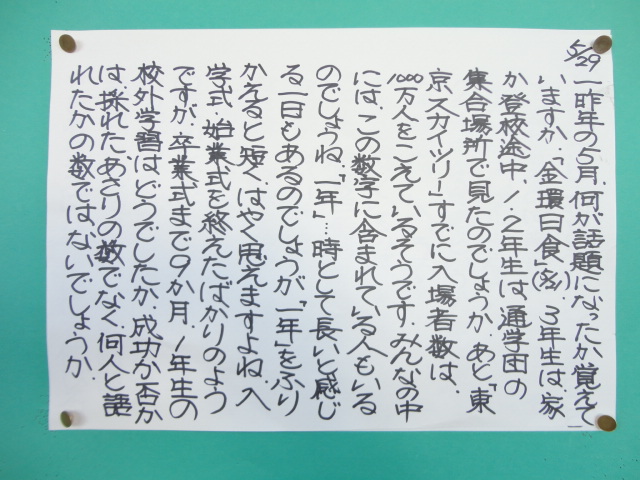 5/29
一昨年の5月、何が話題になったか覚えて
いますか。「金環日食」(5/21)、3年生は、家
か登校途中、1.2年生は通学団の
集合場所で見たのでしょうか。あと「東
京スカイツリー」すでに入場者数は、
1000万人をこえているそうです。みんなの中
には、この数字に含まれている人もいる
のでしょうね。「一年」…時として長いと感じ
る一日もあるのでしょうが「一年」をふり
かえると短く、はやく思えますよね。入
学式・始業式を終えたばかりのよう
ですが、卒業式まで9か月。1年生の
校外学習はどうでしたか。成功か否か
は、採れたあさりの数でなく、何人と語
れたかの数ではないでしょうか。